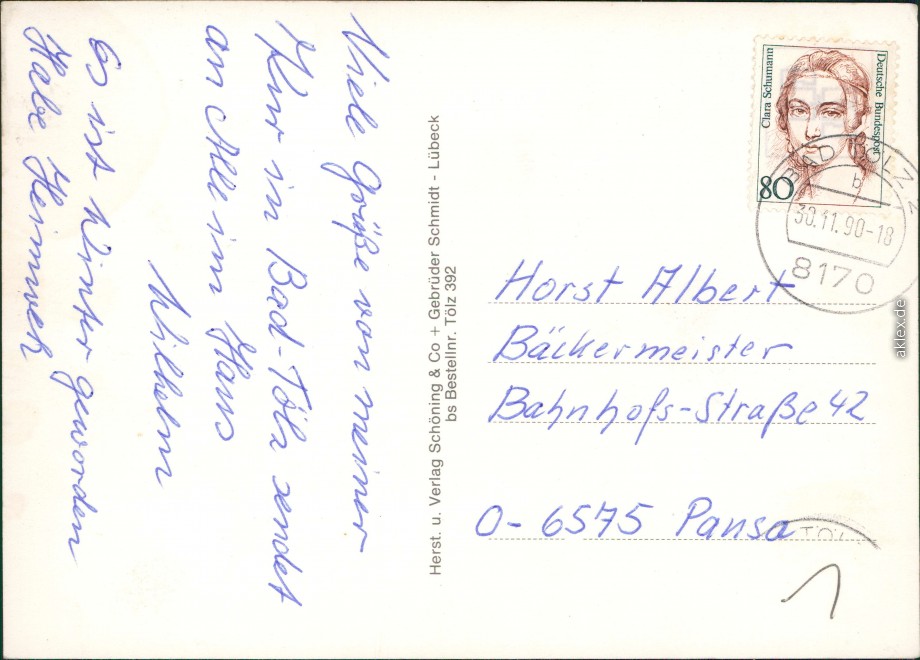 Viele Grüße von meiner
Kur in Bad-Tölz sendet
an Alle im Haus
Wilhelm
Es ist Winter geworden
Habe Heimweh
Herst. u. Verlag Schöning & Co + Gebrüder Schmidt - Lübeck
bs Bestellnr. Tölz 392
Clara Schumann
Deutsche Bundespost
80
BAD TÖLZ 2
b
30.11.90-18
8170
Horst Albert
Bäckermeister
Bahnhofs-Straße 42
O-6575 Pansa
TÖL
1
aklex.de